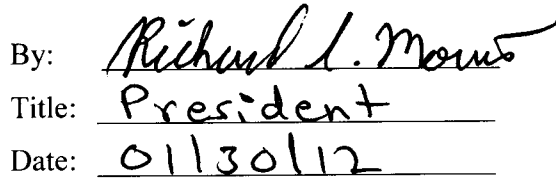 By: Richard L. Morris
Title: President
Date: 01/30/12